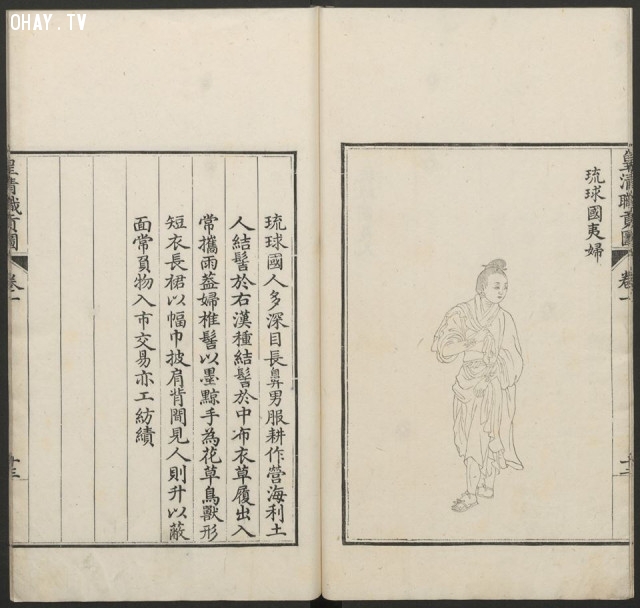 OHAY.TV
皇清職貢圖
卷一
十三
琉球國夷婦
琉球國人多深目長鼻男服耕作營海利土
人結髻於右漢種結髻於中布衣草履出入
常攜雨葢婦椎髻以墨黥手為花草鳥獸形
短衣長裙以幅巾披肩背間見人則升以蔽
面常負物入市交易亦工紡績
皇清職貢圖
卷一
十三